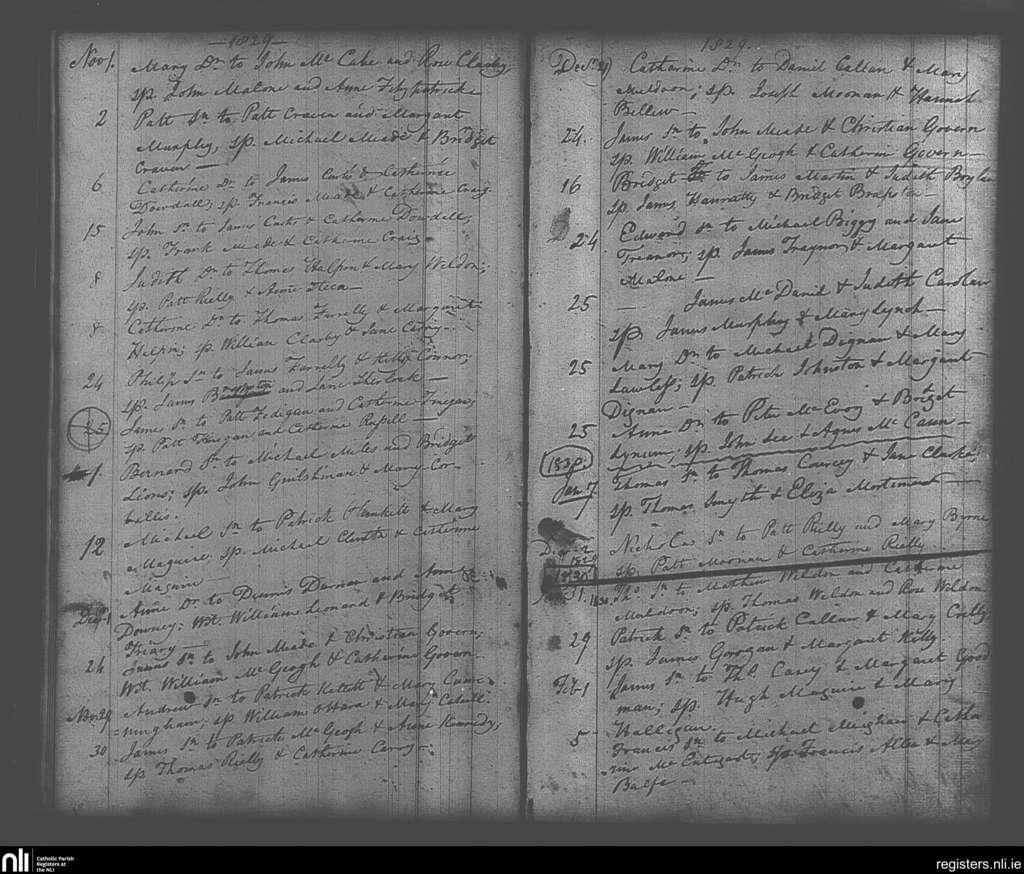 1829
Nov 1. Mary Dr. to John Mc Cabe and Rose Clasby
sp. John Malone and Anne Fitzpatrick
2 Patt Sn to Patt Craven and Margaret
Murphy, sp. Michael Meade & Bridget
Craven
6 Catherine Dr. to James Curts & Catherine
Dowdall; sp. Francis Meade & Catherine Craig
15 John Sn to James Curts & Catherine Dowdall;
sp. Frank Meade & Catherine Craig
8 Judith Dr to Thomas Halpin & Mary Weldon;
sp. Patt Rielly & Anne
8 Catherine Dr to Thomas Farrelly & Margaret
Helpin; sp. William Clasby & Jane
24 Philip Sn to James Farrelly & Connor,
sp. James and Jane Sherlock
25 James Sn to Patt Fedigan and Catherine Finegan,
sp. Patt Finegan and Catherine Russell
1. Bernard Sn to Michael Miles and Bridget
Lions; sp. John & Mary Cor-
ballis.
12 Michael Sn to Patrick Plunkett & Mary
Maguire, sp. Michael & Catherine
Maguire
Decr. 1 Anne Dr to Dennis Darnan and Anne
Downey; Wt. William Leonard & Bridget
Friary
24 James Sn to John Meade & Christian Govern;
Wt. William Mc Geogh & Catherine Govern
Nov. 29 Andrew Sn to Patrick & Mary Cunne-
ningham; sp William Ohara & Mary
30 James Sn to Patrick Mc Geogh & Anne Kennedy;
sp Thomas Rielly & Catherine
1829.
Decr. Catharine Dr. to Daniel Callan & Mary
Muldoon; sp. Joseph Moonan & Hannah
Bellew
24. James Sn to John Meade & Christian Govern
sp. William Mc Geogh & Catherin Govern
16 Bridget Dr to James Martin & Judith Boylan
sp. James Hanratty & Bridget
24 Edward Sn to Michael Biggy and Jane
Treanor; sp. James Traynor & Margaret
Malone
25 James Mc Daniel & Judeth Carolan
sp. James Murphey & Mary Lynch
25 Mary Dr to Michael Dignan & Mary
Lawless; sp. Patrick Johnston & Margaret
Dignan
25 Anne Dr to Peter Mc Evoy & Bridget
Lynam; sp. John Lee & Agnes Mc Cann
1830. Thomas Sn to Thomas Courcey & Jane Clarke;
Jan. 7 sp. Thomas Smyth & Eliza
Sn to Patt Rielly and Mary Byrne
sp. Patt Moonan & Catherine Rielly
1830
31. 1830 Tho. Sn to Mathew Weldon and Catherine
Muldoon; sp. Thomas Weldon and Rose Weldon
29 Patrick Sn to Patrick Callan & Mary
sp. James Gorrigan & Margaret Kelly.
Feb. 1 James Sn to Ths. Casey & Margaret Good
man; sp. Hugh Maguire & Mary
Halligan.
5 Francis Sn to Michael Meighan & Catha
rine Mc sp. Francis Allen & May
Balfe
nli
Catholic Parish
Registers at
the NLI
registers.nli.ie